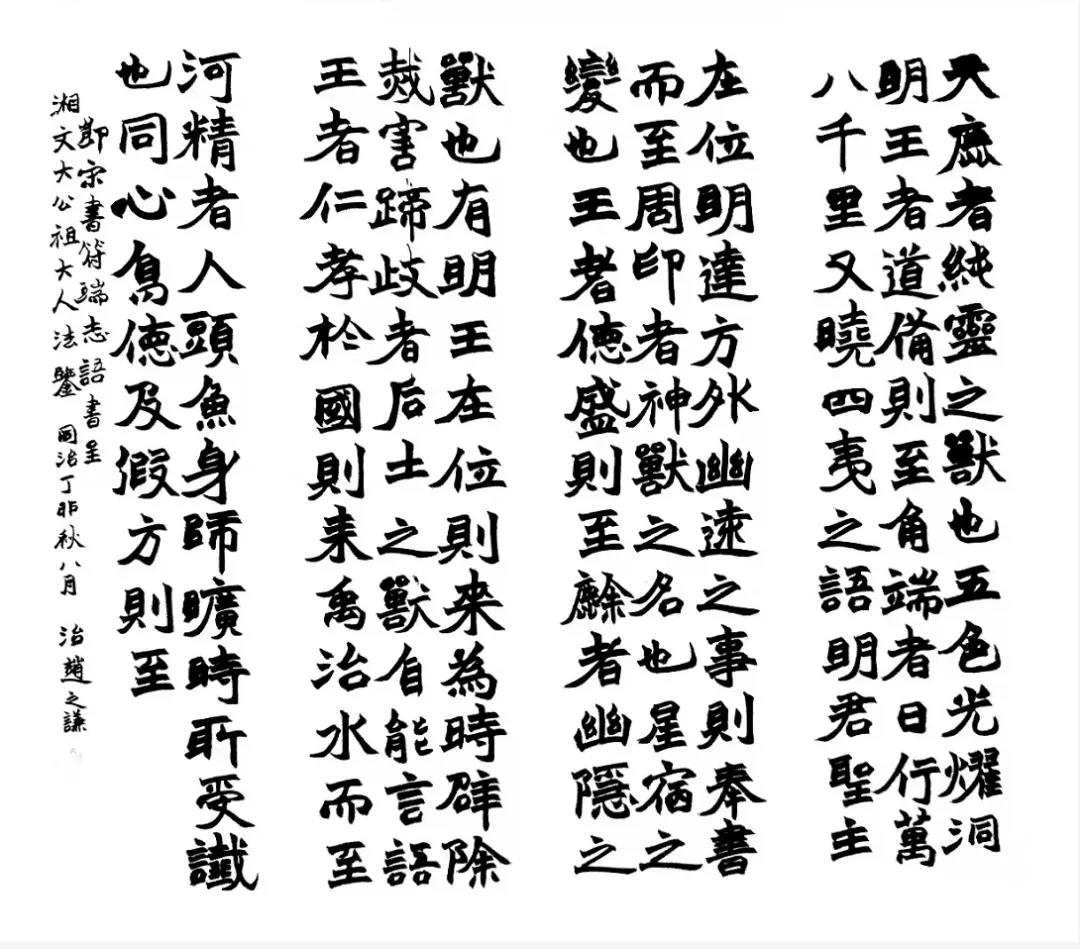 天鹿者純靈之獸也五色光燿洞
明王者道備則至角端者日行萬
八千里又曉四夷之語明君聖主
在位明達方外幽遠之事則奉書
而至周印者神獸之名也星宿之
變也王者德盛則至䴨者幽隱之
獸也有明王在位則來為時辟除
烖害蹄歧者后土之獸自能言語
王者仁孝於國則來禹治水而至
河精者人頭魚身師曠時所受讖
也同心鳥德及假方則至
節宋書符瑞志語書呈
湘文大公祖大人法鑒 同治丁卯秋八月 治趙之謙